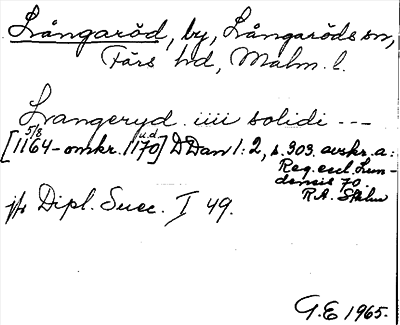 Långaröd, by, Långaröds sn,
Färs hd, Malm. l.
Langeryd. iiii solidi ---
[1164 5/8 - omkr. 1170 u.d.] DDan 1:2, s. 303. avskr. a:
Reg. eccl. Lun-
densis 70.
R.A. Sthlm
jfr Dipl. Suec. I 49.
G.E 1965.